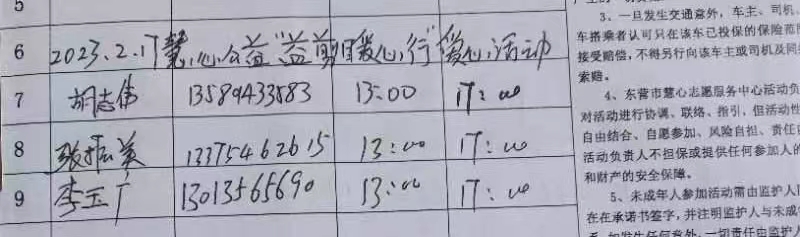 5
6 2023.2.17慧心公益"益剪目爱心行"爱心活动
7 胡志伟 13589433883 13:00 17:00
8 张振美 13375462615 13:00 17:00
9 李玉广 13013565690 13:00 17:00
3、一旦发生交通意外,车主、司机、
车搭乘者认可只在该车已投保的保险范
接受赔偿,不得另行向该车主或司机及同
索赔。
4、东营市慧心志愿服务中心活动负
对活动进行协调、联络、指引,但活动性
自由结合、自愿参加、风险自担、责任
活动负责人不担保或提供任何参加人的
和财产的安全保障。
5、未成年人参加活动需由监护人
在在承诺书签字,并注明监护人与未成
系,如发生任何意外,一切责任由监护人